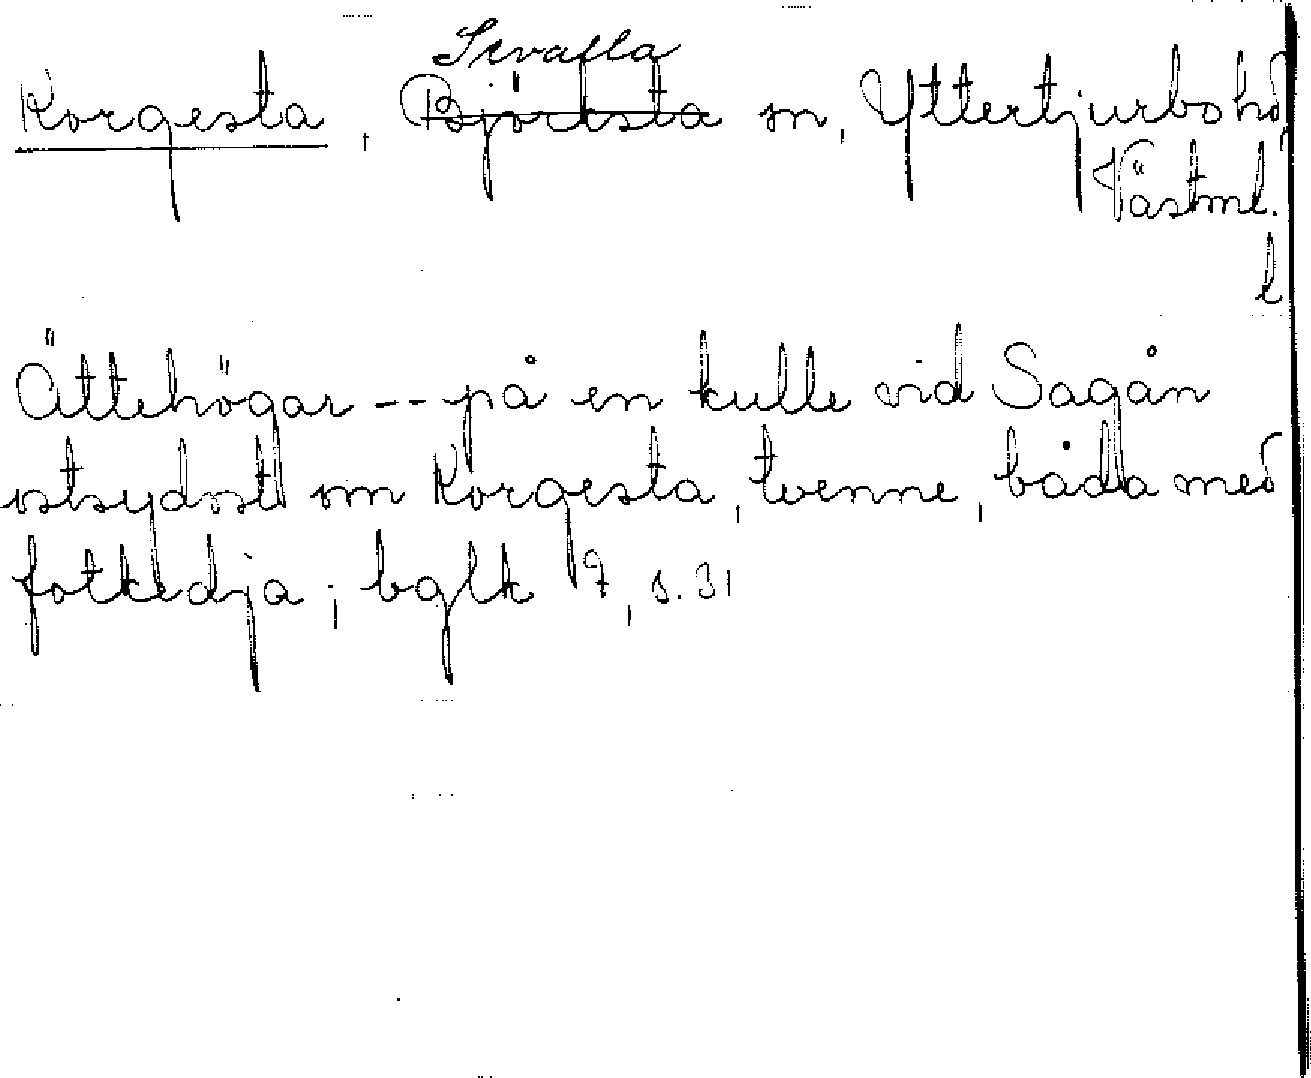 Sevalla
Korgesta, Björksta sn, Yttertjurbo hd
Västml.
l
Ättehögar -- på en kulle vid Sagån
ostsydost om Korgesta, tvenne, båda med
fotkedja; bglk 19, s. 31